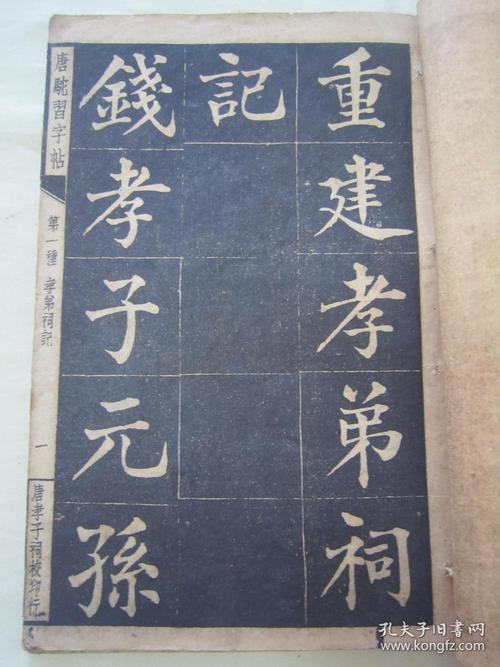 重建孝弟祠
記
錢孝子元孫
唐駝習字帖
第一種 孝弟祠記
一
唐孝子祠校印行
孔夫子旧书网
www.kongfz.com